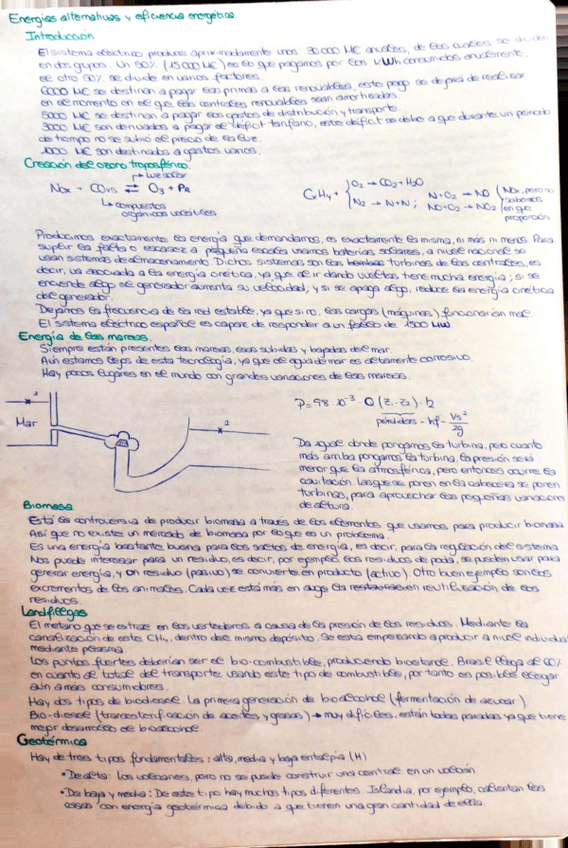 Energías alternativas y eficiencia energética
Introducción
El sistema eléctrico produce aproximadamente unos 30.000 M€ anuales, de los cuales se dividen
en dos grupos. Un 50% (15000 M€) es lo que pagamos por los kWh consumidos anualmente,
el otro 50% se divide en varios factores.
6000 M€ se destinan a pagar las primas a las renovables, este pago se dejará de realizar
en el momento en el que las centrales renovables sean amortizadas.
5000 M€ se destinan a pagar los gastos de distribución y transporte.
3000 M€ son derivados a pagar el déficit tarifario, este déficit se debe a que durante un periodo
de tiempo no se subió el precio de la luz.
1000 M€ son destinados a gastos varios.
Creación del ozono troposférico.
Luz solar
NOx + COVs ⇄ O3 + PR
↳ compuestos
orgánicos volátiles
CxHy + { O2 → CO2 + H2O
N2 → N+N ; N+O2 → NO
NO+O2 → NO2
(NOx, pero no
sabemos
en qué
proporción
Producimos exactamente la energía que demandamos, es exactamente la misma, ni más ni menos. Para
suplir la falta o escasez a pequeña escala usamos baterías solares, a nivel nacional se
usan sistemas de almacenamiento. Dichos sistemas son las turbinas de las centrales, es
decir, va asociada a la energía cinética, ya que al ir dando vueltas tiene mucha energía; si se
enciende algo el generador aumenta su velocidad, y si se apaga algo, reduce la energía cinética
del generador.
Dejamos la frecuencia de la red estable, ya que si no, las cargas (máquinas) funcionarían mal.
El sistema eléctrico español es capaz de responder a un fallo de 1500 MW
Energía de las mareas.
Siempre están presentes las mareas, esas subidas y bajadas del mar.
Aún estamos lejos de esta tecnología, ya que el agua de mar es altamente corrosivo.
Hay pocos lugares en el mundo con grandes variaciones de las mareas.
Mar
P = 9,8 · 10⁻³ · Q (Z1 - Z2) · h
pérdidas - hf - Vs²/2g
Da igual donde pongamos la turbina, pero cuanto
más arriba pongamos la turbina, la presión será
menor que la atmosférica, pero entonces ocurre la
cavitación. Las que se ponen en la cabecera se ponen
turbinas, para aprovechar las pequeñas variaciones
de altura.
Biomasa
Está la controversia de producir biomasa a través de los elementos que usamos para producir biomasa
Así que no existe un mercado de biomasa por lo que es un problema.
Es una energía bastante buena para los saltos de energía, es decir, para la regulación del sistema
Nos puede interesar para un residuo, es decir, por ejemplo los residuos de poda, se pueden usar para
generar energía, y un residuo (pasivo) se convierte en producto (activo). Otro buen ejemplo son los
excrementos de los animales. Cada vez está más en auge la reutilización de los
residuos.
Landfillgas
El metano que se extrae en los vertederos a causa de la presión de los residuos. Mediante la
canalización de este CH4, dentro del mismo depósito. Se está empezando a producir a nivel individual
mediante
Los puntos fuertes deberían ser el bio-combustible, produciendo bioetanol. Brasil llega al
en cuanto al total del transporte usando este tipo de combustibles, por tanto es posible llegar
aún a más consumidores.
Hay dos tipos de biodiesel. La primera generación de bioalcohol (fermentación de azúcar)
Bio-diesel (transesterificación de aceites y grasas) → muy difíciles, están todas paradas ya que tiene
mejor desarrollo el bioalcohol
Geotérmica
Hay de tres tipos fundamentales: alta, media y baja entalpía (H)
• De alta: Los volcanes, pero no se puede construir una central en un volcán
• De baja y media: De este tipo hay muchos tipos diferentes. Islandia, por ejemplo, calientan las
casas con energía geotérmica debido a que tienen una gran cantidad de ella.